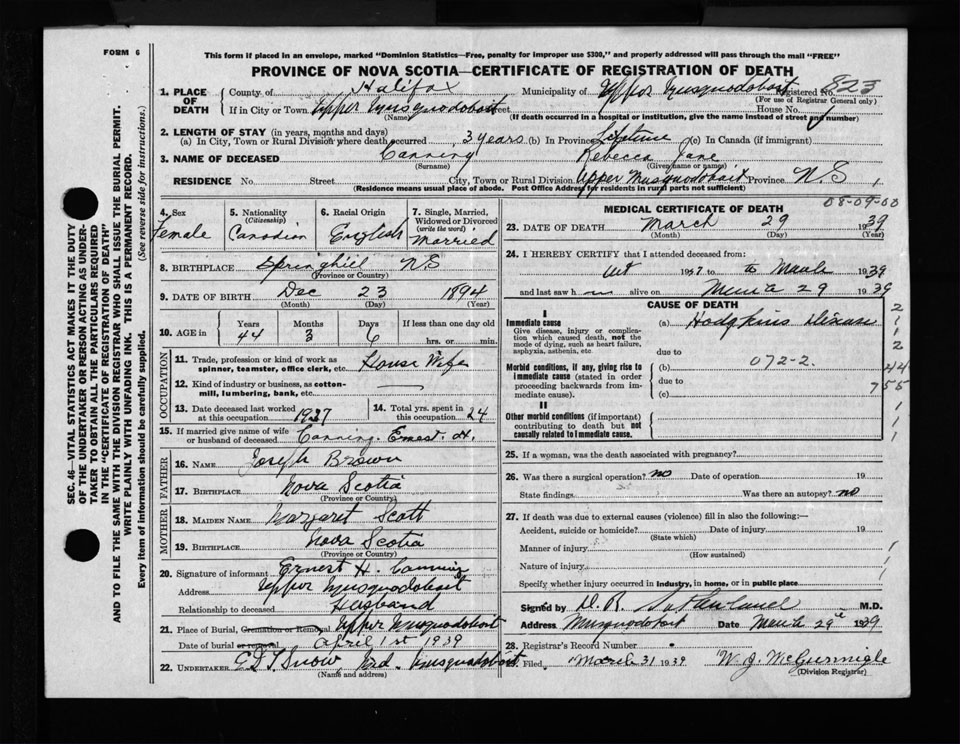 FORM 6
This form if placed in an envelope, marked "Dominion Statistics—Free, penalty for improper use $300," and properly addressed will pass through the mail "FREE"
PROVINCE OF NOVA SCOTIA—CERTIFICATE OF REGISTRATION OF DEATH
SEC. 46—VITAL STATISTICS ACT MAKES IT THE DUTY
OF THE UNDERTAKER OR PERSON ACTING AS UNDER-
TAKER TO OBTAIN ALL THE PARTICULARS REQUIRED
IN THE "CERTIFICATE OF REGISTRATION OF DEATH"
AND TO FILE THE SAME WITH THE DIVISION REGISTRAR WHO SHALL ISSUE THE BURIAL PERMIT.
WRITE PLAINLY WITH UNFADING INK. THIS IS A PERMANENT RECORD.
Every item of information should be carefully supplied. (See reverse side for instructions.)
1. PLACE OF DEATH County of Halifax Municipality of Upper Musquodoboit Registered No. 823
(For use of Registrar General only)
If in City or Town Upper Musquodoboit Street House No.
(Name) (If death occurred in a hospital or institution, give the name instead of street and number)
2. LENGTH OF STAY (in years, months and days)
(a) In City, Town or Rural Division where death occurred 3 years (b) In Province Lifetime (c) In Canada (if immigrant)
3. NAME OF DECEASED Canning Rebecca Jane
(Surname) (Given name or names)
RESIDENCE No. Street City, Town or Rural Division Upper Musquodoboit Province N.S.
(Residence means usual place of abode. Post Office Address for residents in rural parts not sufficient)
4. Sex Female
5. Nationality (Citizenship) Canadian
6. Racial Origin English
7. Single, Married, Widowed or Divorced (write the word) Married
8. BIRTHPLACE Springhill N.S
(Province or Country)
9. DATE OF BIRTH Dec 23 1894
(Month) (Day) (Year)
10. AGE in Years Months Days If less than one day old
44 3 6 hrs. or min.
OCCUPATION
11. Trade, profession or kind of work as spinner, teamster, office clerk, etc. House Wife
12. Kind of industry or business, as cotton-mill, lumbering, bank, etc.
13. Date deceased last worked at this occupation 1937
14. Total yrs. spent in this occupation 24
15. If married give name of wife or husband of deceased Canning. Ernest H.
FATHER
16. NAME Joseph Brown
17. BIRTHPLACE Nova Scotia
(Province or Country)
MOTHER
18. MAIDEN NAME Margaret Scott
19. BIRTHPLACE Nova Scotia
(Province or Country)
20. Signature of informant Ernest H. Canning
Address Upper Musquodoboit
Relationship to deceased Husband
21. Place of Burial, Cremation or Removal Upper Musquodoboit
Date of burial or removal April 1st 1939
22. UNDERTAKER Musquodoboit
(Name and address)
08-09-00
MEDICAL CERTIFICATE OF DEATH
23. DATE OF DEATH March 29 1939
(Month) (Day) (Year)
24. I HEREBY CERTIFY that I attended deceased from
Oct 1937 to March 1939
and last saw h alive on March 29 1939
CAUSE OF DEATH
I
Immediate cause (a) Hodgkins Disease
Give disease, injury or complication which caused death, not the mode of dying, such as heart failure, asphyxia, asthenia, etc.
due to
Morbid conditions, if any, giving rise to immediate cause (stated in order proceeding backwards from immediate cause). (b) 072-2.
due to
(c)
II
Other morbid conditions (if important) contributing to death but not causally related to immediate cause.
2
1
1
2
44
755
1
1
1
25. If a woman, was the death associated with pregnancy?
26. Was there a surgical operation? no Date of operation 19
State findings Was there an autopsy? no
27. If death was due to external causes (violence) fill in also the following:—
Accident, suicide or homicide? Date of injury 19
(State which)
Manner of injury
(How sustained)
Nature of injury
Specify whether injury occurred in industry, in home, or in public place
Signed by D. R. Sutherland M.D.
Address Musquodoboit Date March 29th 1939
28. Registrar's Record Number
29. Filed, March 31 1939 W. J. McGunnigle
(Division Registrar)